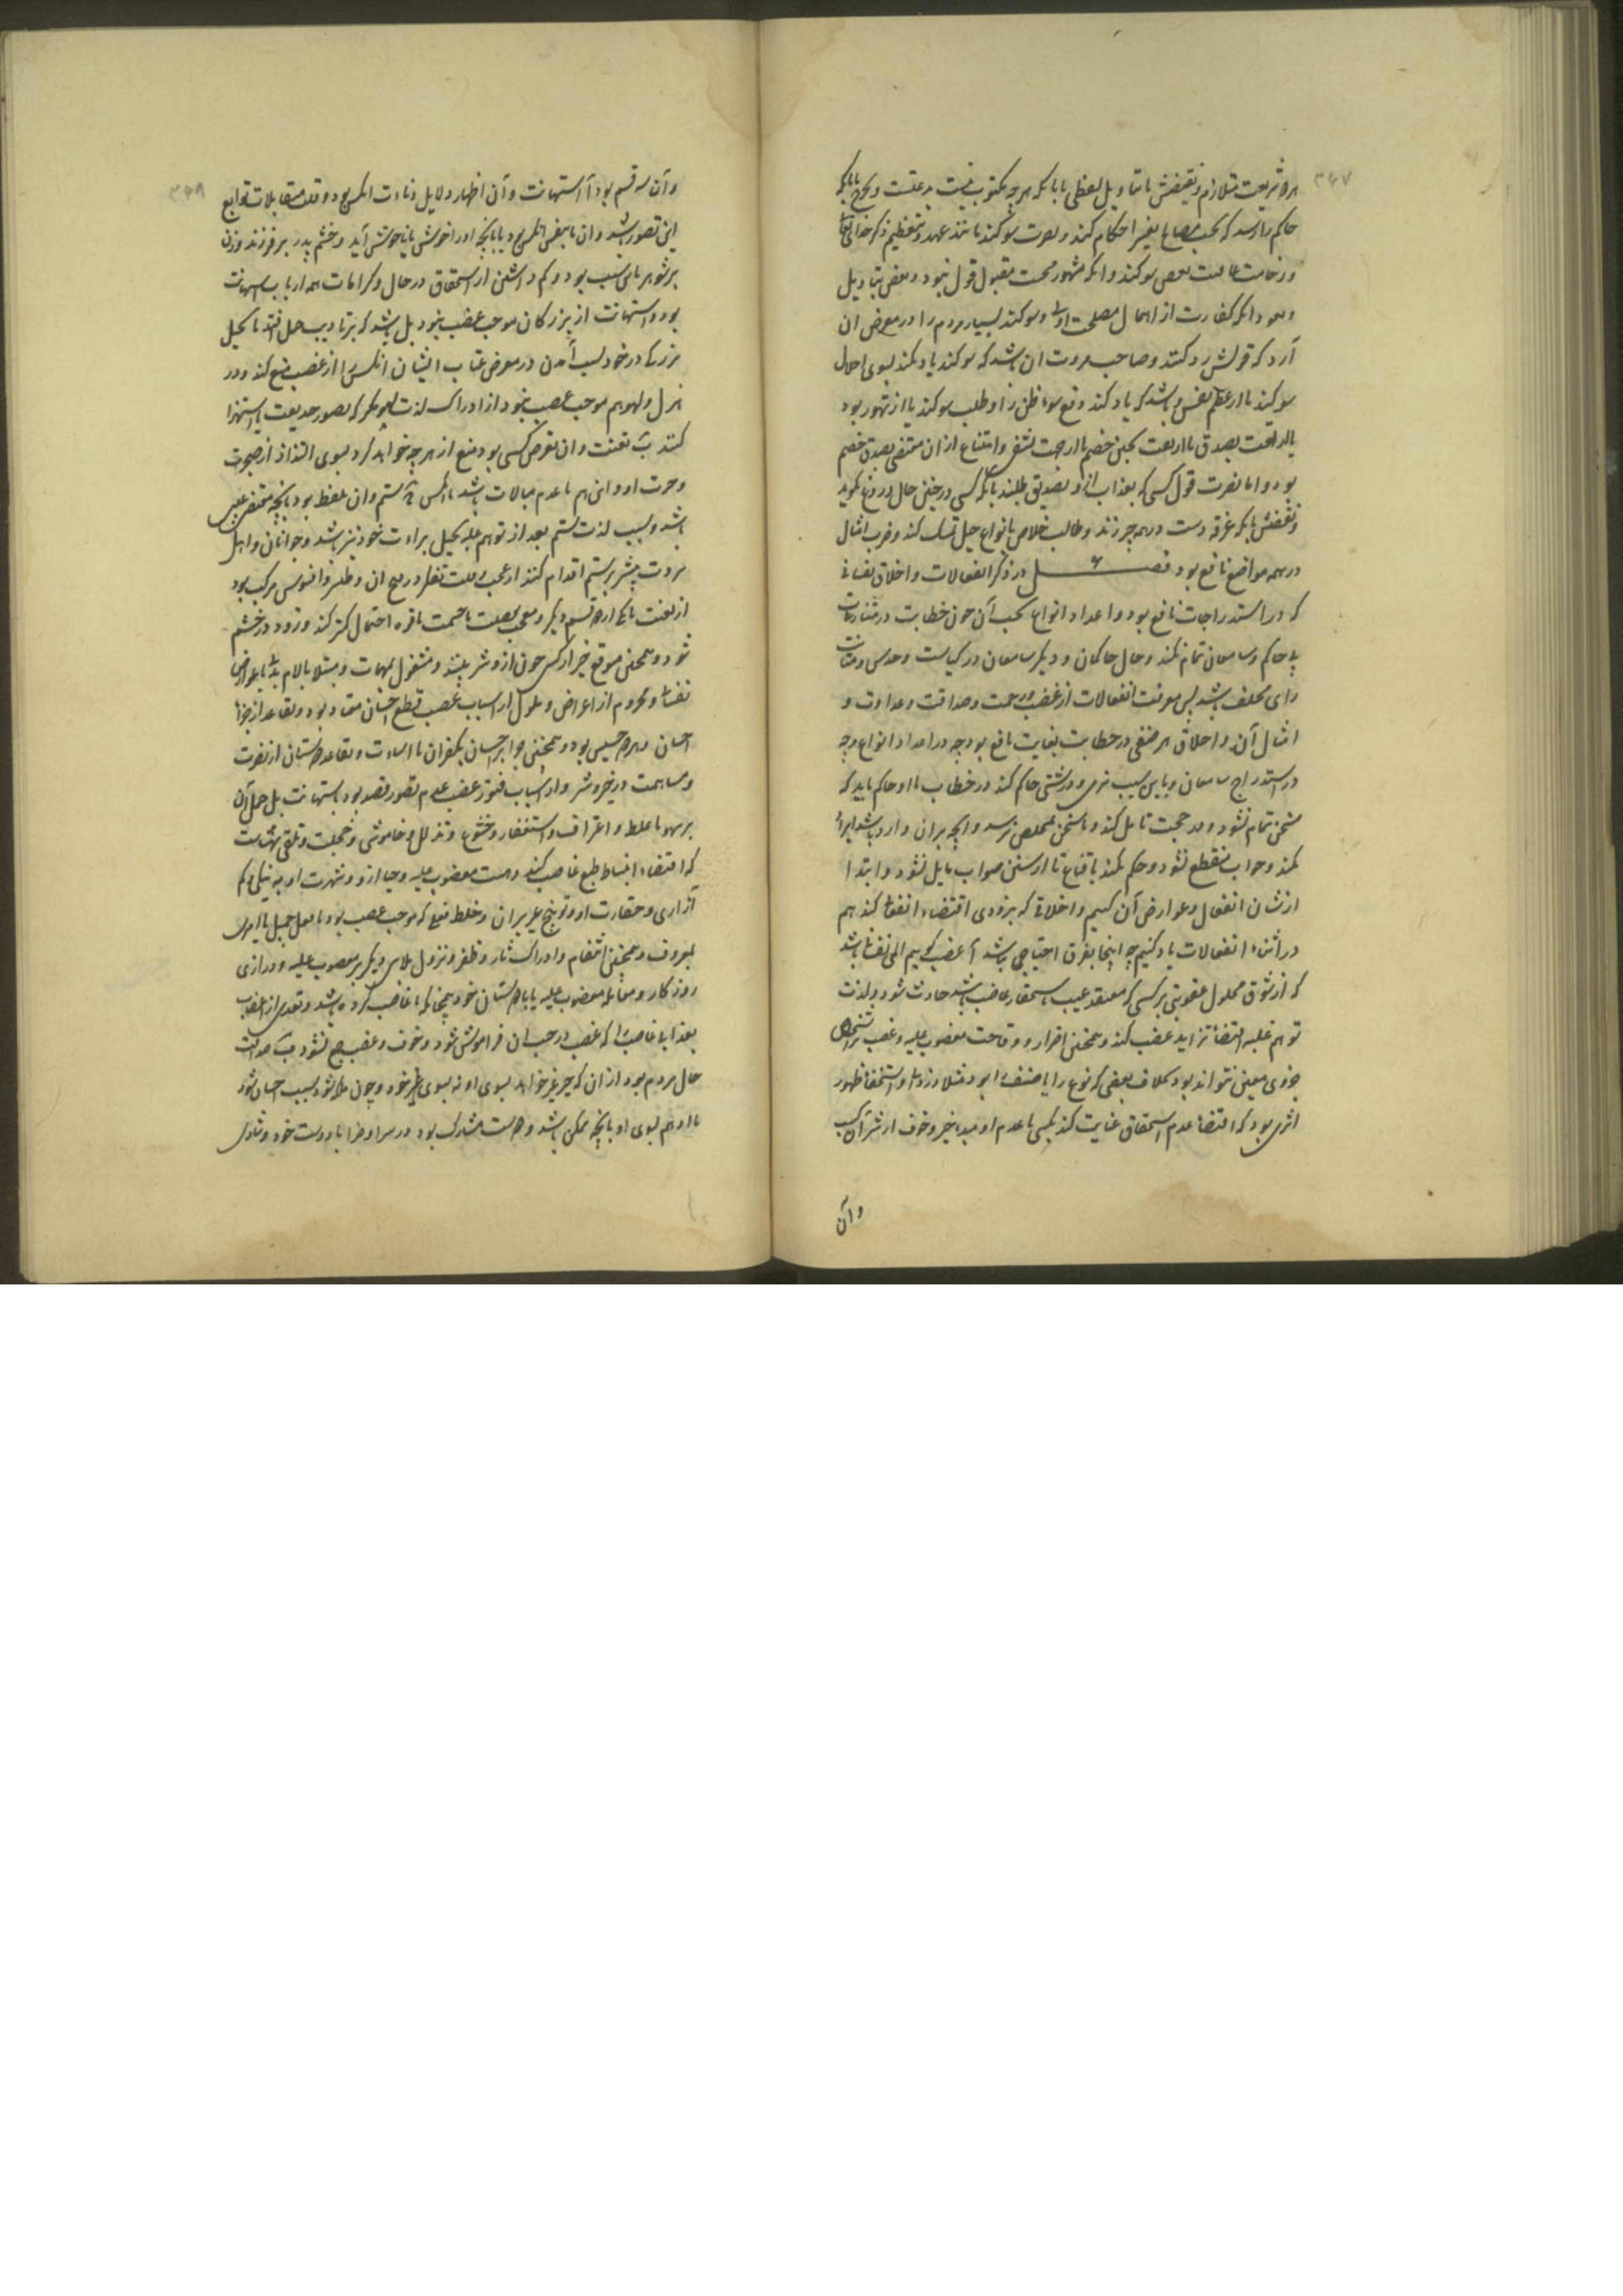 ۳۴۷
بود شریعت متلازم و نقیضش یا بتأویل لفظی یا بآنکه هر چه مکتوب نیست بدعتست و
حاکم را رسد که بحسب مصالح تغییر احکام کند و نصرت سوگند مانند عهد و تعظیم ذکر خدای تعالی
و وخامت عاقبت نقض سوگند و آنکه مشهور بصحت مقبول قول بود و نقض بتأویل
و بآنکه کفارت از اهمال مصلحت اولی و سوگند بسیار مردم را در معرض آن
آرد که قولش رد کنند و صاحب مروت آن باشد که سوگند یاد نکند بسوی اجلال
سوگند یا از عظم نفس و باشد که یاد کند دفع سوء ظن را و طلب سوگند یا از تهور بود
یا از ثقت بصدق یا از ثقت بجبن خصم یا از جهت تشفی و امتناع از آن مقتضی بصدق خصم
بود و اما نصرت قول کسی که بعذاب ازو تصدیق طلبند بآنکه کسی در چنین حال دروغ نگوید
و نقیضش بآنکه غرقه دست در همه چیز زند و طالب خلاص بانواع حیل تمسک کند و ضرب امثال
در همه مواضع نافع بود فصل ۶ در ذکر انفعالات و اخلاق نفسانی
که در استدراجات نافع بود و اعداد انواع بحسب آن چون خطابت در منازعات
بی حاکم و سامعان تمام نکند و حال حاکمان و دیگر سامعان در کیاست و حدس و متانت
رای مختلف باشد پس معرفت انفعالات از غضب و رحمت و صداقت و عداوت و
امثال آن و اخلاق هر صنفی در خطابت بغایت نافع بود چه در اعداد انواع و چه
در استدراج سامعان و باین سبب نرمی و درشتی حاکم کند در خطاب با او حاکم باید که
سخن تمام نشود و در حجت تأمل کند و تا سخن بمخلص نرسد و آنچه بر آن وارد باشد ایراد
نکند و جواب منقطع نشود و حکم نکند باقناع تا از سنن صواب مایل نشود و ابتدا
از شأن انفعال و عوارض آن کنیم و اخلاقی که بزودی اقتضاء انفعال کند هم
در اثناء انفعالات یاد کنیم چه اینجا بفرق احتیاجی نباشد آ غضب گوییم المی نفسانی باشد
که از شوق بحلول عقوبتی بر کسی که معتقد عیب باستحقار غاضب باشد حادث شود و لذت
توهم غلبه اقتضاء تزاید غضب کند و همچنین اصرار و وقاحت مغضوب علیه و غضب بر اشخاص
جزوی معین تواند بود بخلاف بغض که نوع را یا صنف را بود مثلا و استخفاف ظهور
اثری بود که اقتضاء عدم استحقاق عنایت کند بکسی با عدم امید بخیر و خوف از شر آنکس
و آن
۳۴۸
و آن سه قسم بود آ استهانت و آن اظهار دلایل دناءت آنکس بود و قلت مبالات توابع
این تصور باشد و آن یا بنفس آنکس بود یا بآنچه او را خوش یا ناخوش آید و خشم پدر بر فرزند و زن
بر شوهر باین سبب بود و کم داشتن از استحقاق در حال و کرامات همه از باب استهانت
بود و استهانت از بزرگان موجب غضب نبود بل باشد که بر تأدیب حمل افتد یا تخیل
بزرگی در خود بسبب آمدن در معرض عتاب ایشان آنکس را از غضب منع کند و در
هزل و لهو هم موجب غضب نبود از ادراک لذت لهو مگر که بصورت حقیقت یا استهزا
کنند ب تعنت و آن تعرض کسی بود بمنع از هر چه خواهد کرد بسوی التذاذ از ضجرت
و حیرت او و این هم با عدم مبالات باشد بآنکس ج شتم و آن بلفظ بود بآنچه مقتضی عیب
باشد و سبب لذت شتم بعد از توهم غلبه تخیل براءت خود نیز باشد و جوانان و اهل
ثروت بیشتر بر شتم اقدام کنند از عجب و قلت تفکر در قبح آن و طنز و افسوس مرکب بود
از تعنت با یکی از دو قسم دیگر و معجب بفضیلت یا حشمت یا قوه احتمال کمتر کند و زود در خشم
شود و همچنین متوقع خیر از کسی چون ازو شر بیند و مشغول بمهمات و مبتلا بآلام بدنی یا عوارض
نفسانی و محروم از اغراض و ملول از اسباب غضب قطع احسان معتاد بود و تقاعد از جزاء
احسان و جزاء خسیس بود و همچنین جواب احسان بکفران یا اساءت و تقاعد دوستان از نصرت
و مساهمت در خیر و شر و از اسباب فتور غضب عدم تصور قصد بود باستهانت بل حمل آن
بر سهو یا غلط و اعتراف و استغفار و خشوع و تذلل و خاموشی و خجلت و تلقی ببشاشت
که اقتضاء انبساط طبع غاضب کند و هیبت مغضوب علیه و حیا ازو و شهرت او به نیکی و کم
آزاری و حقارت او و توبیخ بر آن و خلط فعلی که موجب غضب بود با فعل جمیل یا امری
بمعروف و همچنین انتقام و ادراک ثار و ظفر و نزول بلای دیگر بر مغضوب علیه و درازی
روزگار و معامله مغضوب علیه با دوستان خود همچنانکه با غاضب کرده باشد و تعدی از اغضاب
بعذاب غاضب را که غضب در جنب آن فراموش شود و خوف و غضب جمع نشود ب صداقت
حال مردم بود از آن که چیز خواهد بسوی او نه بسوی خود و چون بسبب احسان شود
با او هم بسوی او بآنچه ممکن باشد و دوست مشارک بود در سرا و ضرا با دوست خود و شادی